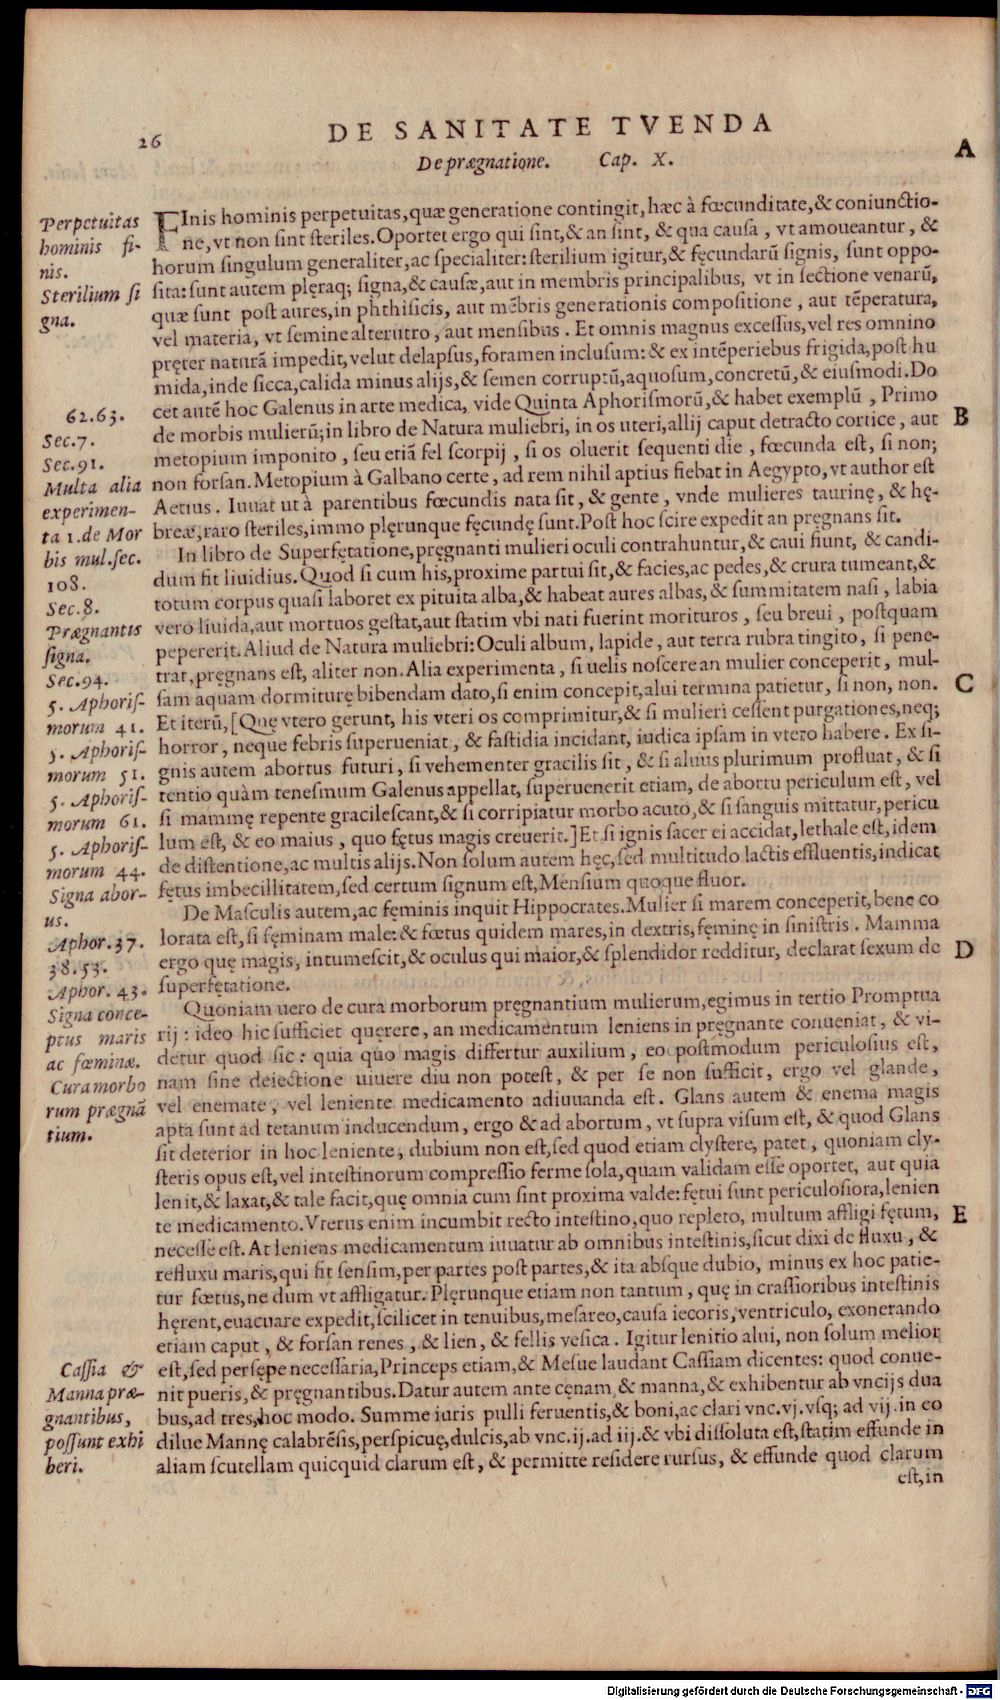 26
DE SANITATE TVENDA
De prægnatione. Cap. X.
A
Perpetuitas
hominis fi-
nis.
Sterilium si
gna.
62.63.
Sec.7.
Sec.91.
Multa alia
experimen-
ta 1.de Mor
bis mul.sec.
108.
Sec.8.
Prægnantis
signa.
Sec.94.
5. Aphoris-
morum 41.
5. Aphoris-
morum 51.
5. Aphoris-
morum 61.
5. Aphoris-
morum 44.
Signa abor-
us.
Aphor.37.
38.53.
Aphor. 43.
Signa conce-
ptus maris
ac fœminæ.
Cura morbo
rum prægnā
tium.
Cassia &
Manna præ-
gnantibus,
possunt exhi
beri.
FInis hominis perpetuitas,quæ generatione contingit,hæc à fœcunditate,& coniunctio-
ne,vt non sint steriles.Oportet ergo qui sint,& an sint, & qua causa , vt amoueantur , &
horum singulum generaliter,ac specialiter:sterilium igitur,& fęcundarū signis, sunt oppo-
sita:sunt autem plęraq; signa,& causæ,aut in membris principalibus, vt in sectione venarū,
quæ sunt post aures,in phthisicis, aut mēbris generationis compositione , aut tēperatura,
vel materia, vt semine alterutro, aut mensibus . Et omnis magnus excessus,vel res omnino
pręter naturā impedit,velut delapsus,foramen inclusum:& ex intēperiebus frigida,post hu
mida,inde sicca,calida minus alijs,& semen corruptū,aquosum,concretū,& eiusmodi.Do
cet autē hoc Galenus in arte medica, vide Quinta Aphorismorū,& habet exemplū , Primo
de morbis mulierū;in libro de Natura muliebri, in os uteri,allij caput detracto cortice , aut
metopium imponito , seu etiā fel scorpij , si os oluerit sequenti die , fœcunda est, si non;
non forsan.Metopium à Galbano certe, ad rem nihil aptius fiebat in Aegypto,vt author est
Aetius. Iuuat ut à parentibus fœcundis nata sit, & gente , vnde mulieres taurinę, & hę-
breæ,raro steriles,immo plęrunque fęcundę sunt.Post hoc scire expedit an pręgnans sit.
In libro de Superfętatione,pręgnanti mulieri oculi contrahuntur,& caui fiunt, & candi-
dum fit liuidius.Quod si cum his,proxime partui sit,& facies,ac pedes,& crura tumeant,&
totum corpus quasi laboret ex pituita alba,& habeat aures albas,& summitatem nasi , labia
vero liuida,aut mortuos gestat,aut statim vbi nati fuerint morituros , seu breui , postquam
pepererit.Aliud de Natura muliebri:Oculi album, lapide, aut terra rubra tingito, si pene-
trat,pręgnans est, aliter non.Alia experimenta , si uelis noscere an mulier conceperit , mul-
sam aquam dormiturę bibendam dato,si enim concepit,alui termina patietur, si non, non.
Et iterū,[Quę vtero gerunt, his vteri os comprimitur,& si mulieri cessent purgationes,neq;
horror, neque febris superueniat , & fastidia incidant, iudica ipsam in vtero habere. Ex si-
gnis autem abortus futuri, si vehementer gracilis sit , & si aluus plurimum profluat, & si
tentio quàm tenesmum Galenus appellat, superuenerit etiam, de abortu periculum est , vel
si mammę repente gracilescant,& si corripiatur morbo acuto,& si sanguis mittatur,pericu
lum est, & eo maius , quo fętus magis creuerit.]Et si ignis sacer ei accidat,lethale est,idem
de distentione,ac multis alijs.Non solum autem hęc,sed multitudo lactis effluentis,indicat
fętus imbecillitatem,sed certum signum est,Mensium quoque fluor.
De Masculis autem,ac fęminis inquit Hippocrates.Mulier si marem conceperit,bene co
lorata est,si fęminam male:& fœtus quidem mares,in dextris,fęminę in sinistris. Mamma
ergo quę magis, intumescit,& oculus qui maior,& splendidor redditur, declarat sexum de
superfętatione.
Quoniam uero de cura morborum pręgnantium mulierum,egimus in tertio Promptua
rij: ideo hic sufficiet quęrere, an medicamentum leniens in pręgnante conueniat , & vi-
detur quod sic: quia quo magis differtur auxilium, eo postmodum periculosius est,
nam sine deiectione uiuere diu non potest, & per se non sufficit, ergo vel glande,
vel enemate, vel leniente medicamento adiuuanda est. Glans autem & enema magis
apta sunt ad tetanum inducendum, ergo & ad abortum, vt supra visum est, & quod Glans
sit deterior in hoc leniente, dubium non est,sed quod etiam clystere, patet, quoniam cly-
steris opus est,vel intestinorum compressio ferme sola,quam validam esse oportet, aut quia
lenit,& laxat,& tale facit,quę omnia cum sint proxima valde:fętui sunt periculosiora,lenien
te medicamento.Vterus enim incumbit recto intestino,quo repleto, multum affligi fętum,
necesse est. At leniens medicamentum iuuatur ab omnibus intestinis,sicut dixi de fluxu, &
refluxu maris,qui fit sensim,per partes post partes,& ita absque dubio, minus ex hoc patie-
tur fœtus,ne dum vt affligatur.Plęrunque etiam non tantum , quę in crassioribus intestinis
hęrent,euacuare expedit,scilicet in tenuibus,mesareo,causa iecoris,ventriculo, exonerando
etiam caput , & forsan renes , & lien, & fellis vesica . Igitur lenitio alui, non solum melior
est,sed persępe necessaria,Princeps etiam,& Mesue laudant Cassiam dicentes: quod conue-
nit pueris,& pręgnantibus.Datur autem ante cęnam & manna,& exhibentur ab vncijs dua
bus,ad tres,hoc modo. Summe iuris pulli feruentis,& boni,ac clari vnc.vj.vsq; ad vij.in eo
dilue Mannę calabrēsis,perspicuę,dulcis,ab vnc.ij.ad iij.& vbi dissoluta est,statim effunde in
aliam scutellam quicquid clarum est , & permitte residere rursus, & effunde quod clarum
est,in
B
C
D
E
Digitalisierung gefördert durch die Deutsche Forschungsgemeinschaft - DFG